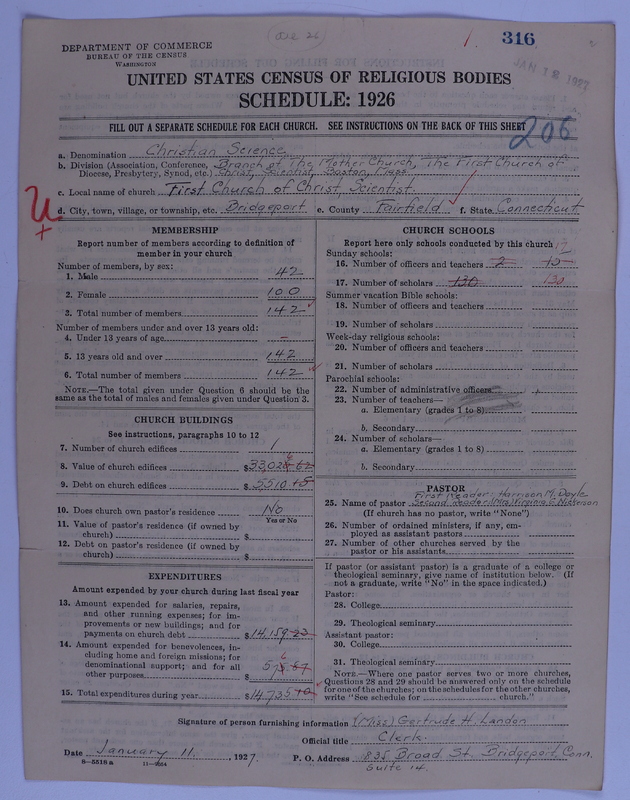 Dec 26
1.
316
JAN 12 1927
DEPARTMENT OF COMMERCE
BUREAU OF THE CENSUS
WASHINGTON
UNITED STATES CENSUS OF RELIGIOUS BODIES
SCHEDULE: 1926
FILL OUT A SEPARATE SCHEDULE FOR EACH CHURCH. SEE INSTRUCTIONS ON THE BACK OF THIS SHEET
206
a. Denomination Christian Science
b. Division (Association, Conference, Branch of The Mother Church, The First Church of
Diocese, Presbytery, Synod, etc.) Christ, Scientist, Boston, Mass.
c. Local name of church First Church of Christ, Scientist.
d. City, town, village, or township, etc. Bridgeport e. County Fairfield f. State Connecticut
MEMBERSHIP
Report number of members according to definition of
member in your church
Number of members, by sex:
1. Male 42
2. Female 100
3. Total number of members 142
Number of members under and over 13 years old:
4. Under 13 years of age –
5. 13 years old and over 142
6. Total number of members 142
NOTE.—The total given under Question 6 should be
same as the total of males and females given under Question 3.
CHURCH BUILDINGS
See instructions, paragraphs 10 to 12
7. Number of church edifices 1
8. Value of church edifices $33,028 62
9. Debt on church edifices $5,510 45
10. Does church own pastor's residence No
Yes or No
11. Value of pastor's residence (if owned by
church) $
12. Debt on pastor's residence (if owned by
church) $
EXPENDITURES
Amount expended by your church during last fiscal year
13. Amount expended for salaries, repairs,
and other running expenses; for im-
provements or new buildings; and for
payments on church debt $14,159 23
14. Amount expended for benevolences, in-
cluding home and foreign missions; for
denominational support; and for all
other purposes $575 87
15. Total expenditures during year $14,735 10
CHURCH SCHOOLS
Report here only schools conducted by this church
Sunday schools:
16. Number of officers and teachers 2 15 17
17. Number of scholars 130 130
Summer vacation Bible schools:
18. Number of officers and teachers
19. Number of scholars
Week-day religious schools:
20. Number of officers and teachers
21. Number of scholars
Parochial schools:
22. Number of administrative officers
23. Number of teachers—
a. Elementary (grades 1 to 8)
b. Secondary
24. Number of scholars—
a. Elementary (grades 1 to 8)
b. Secondary
PASTOR
First Reader: Harrison M. Doyle
25. Name of pastor Second Reader: Mrs. Virginia C. Nickerson
(If church has no pastor, write "None")
26. Number of ordained ministers, if any, em-
ployed as assistant pastors
27. Number of other churches served by the
pastor or his assistants
If pastor (or assistant pastor) is a graduate of a college or
theological seminary, give name of institution below. (If
not a graduate, write "No" in the space indicated.)
Pastor:
28. College
29. Theological seminary
Assistant pastor:
30. College
31. Theological seminary
NOTE.—Where one pastor serves two or more churches,
Questions 28 and 29 should be answered only on the schedule
for one of the churches; on the schedules for the other churches,
write "See schedule for church."
Signature of person furnishing information (Miss) Gertrude H. Landon
Official title Clerk.
Date January 11, 1927. P. O. Address 835 Broad St. Bridgeport, Conn.
8—5518a 11—2664 Suite 14.